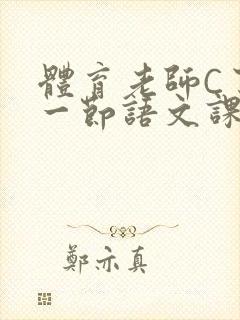 體育老師C
一節語文課
鄭亦真